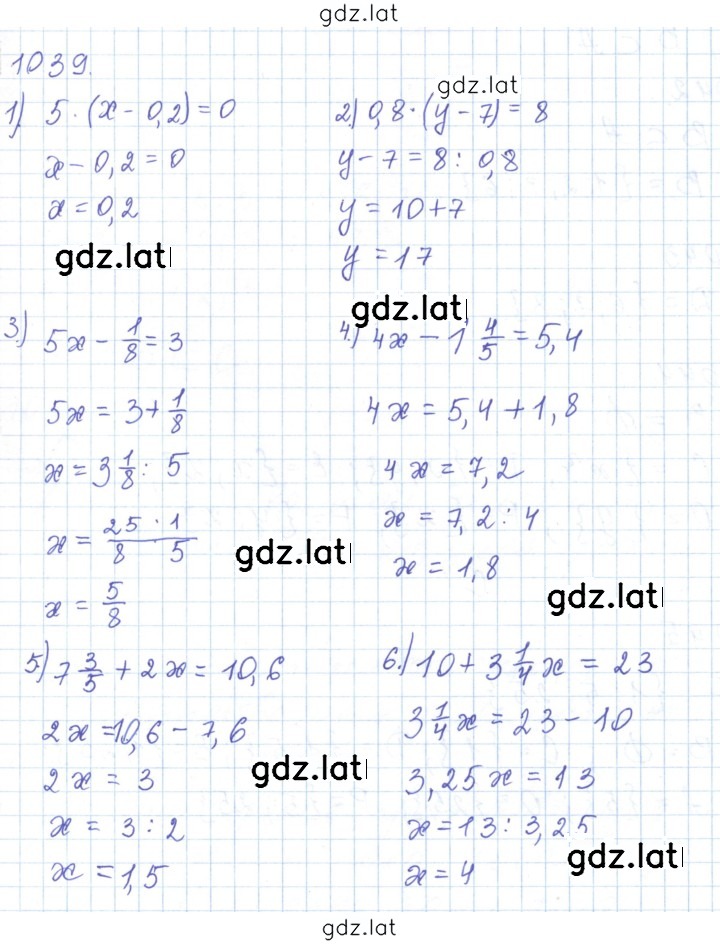 gdz.lat
1039.
gdz.lat
1) 5 · (x - 0,2) = 0
x - 0,2 = 0
x = 0,2
gdz.lat
2) 0,8 · (y - 7) = 8
y - 7 = 8 : 0,8
y = 10 + 7
y = 17
gdz.lat
3.) 5x - 1/8 = 3
5x = 3 + 1/8
x = 3 1/8 : 5
x = 25 · 1 / 8 5
gdz.lat
x = 5/8
4.) 4x - 1 4/5 = 5,4
4x = 5,4 + 1,8
4x = 7,2
x = 7,2 : 4
x = 1,8
gdz.lat
5.) 7 3/5 + 2x = 10,6
2x = 10,6 - 7,6
2x = 3
gdz.lat
x = 3 : 2
x = 1,5
6.) 10 + 3 1/4 x = 23
3 1/4 x = 23 - 10
3,25x = 13
x = 13 : 3,25
gdz.lat
x = 4
gdz.lat